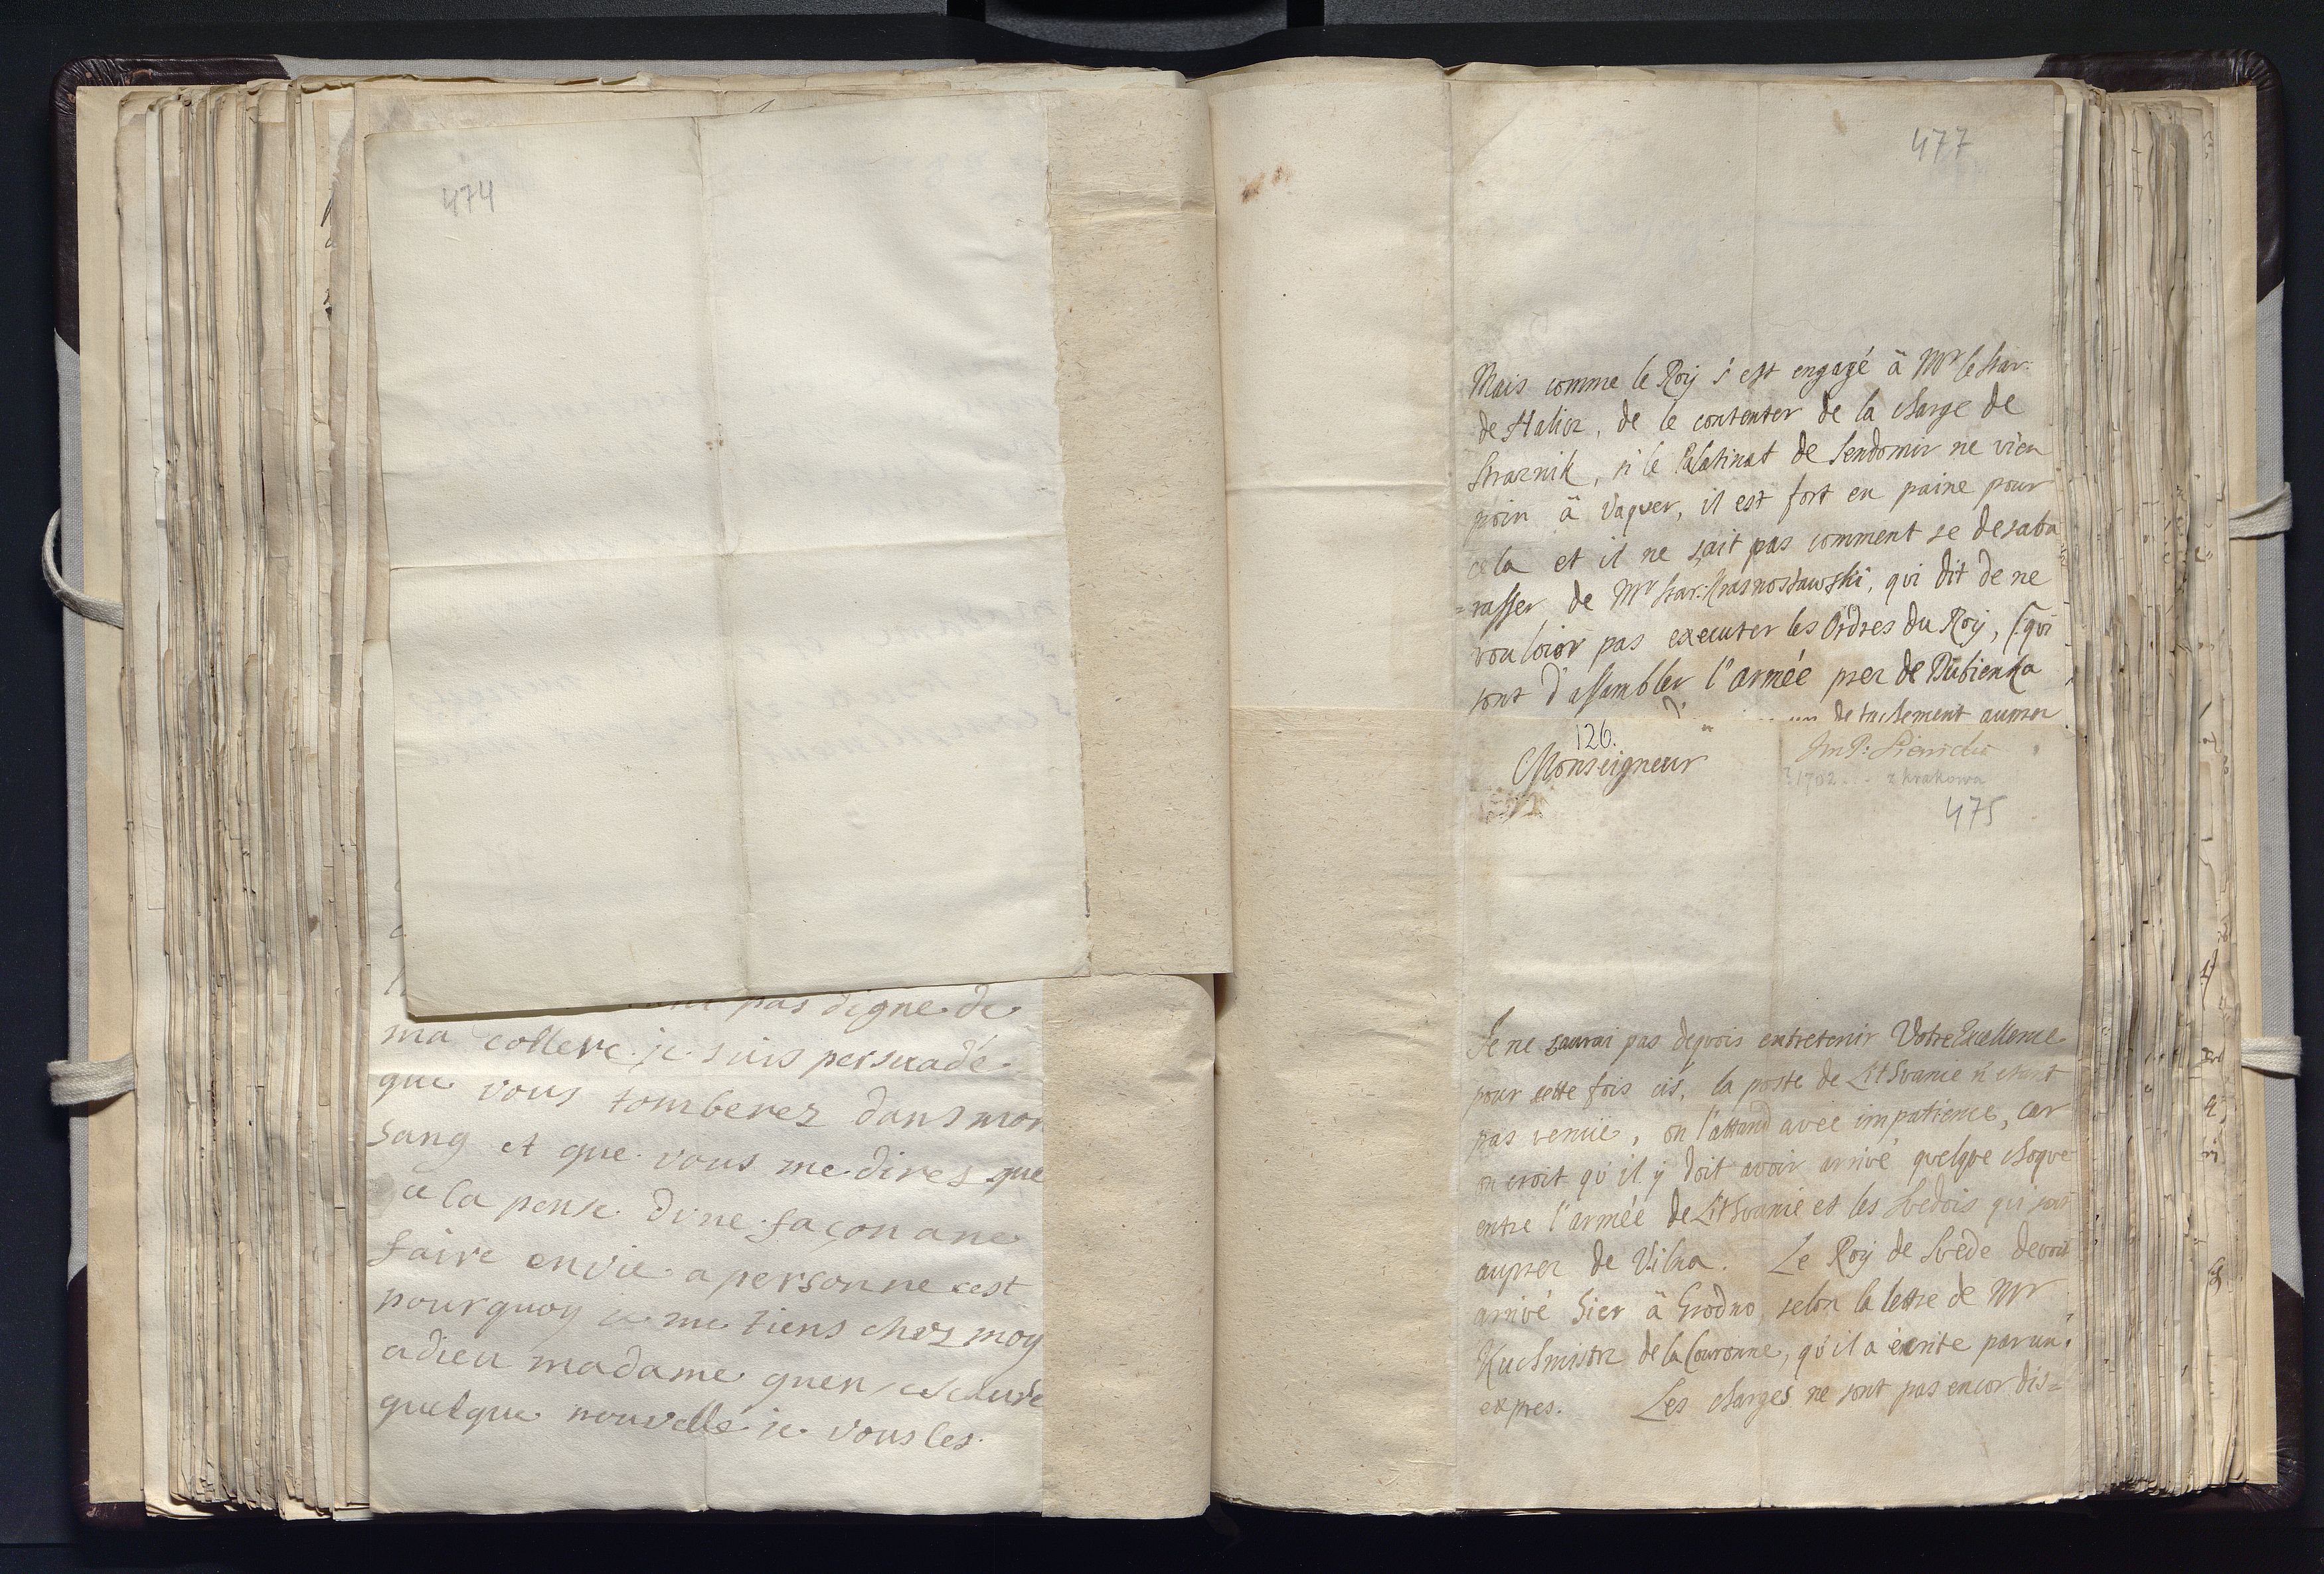 474
pas digne de
ma collere je suis persuadé
que vous tomberez dans mon
sang et que vous me dires que
a la pense dune façon ane
faire envie a personne cest
pourquoy je me tiens ches moy
adieu madame quen
quelque nouvelle je vous les
477
Mais comme le Roÿ s'est engagé à Mr le Star:
de Halicz, de le contenter de la charge de
Straznik, si le Palatinat de Sendomir ne vien
poin à vaquer, il est fort en paine pour
cela et il ne sait pas comment se desaba
=rasser de Mr Star: Krasnostawski, qui dit de ne
vouloior pas executer les Ordres du Roÿ, (:qui
sont d'assambler l'armée prez de Dubienka
un detachement auprez
126.
Monseigneur
JmP: Sienicki
1702 z Krakowa
475
Je ne saurai pas dequois entretenir Votre Excellence
pour cette fois cis, la poste de Lithvanie n'etant
pas venüe, on l'attand avec impatience, car
on croit qu'il y doit avoir arrivé quelque choque
entre l'armée de Lithvanie et les Svedois qui sont
auprez de Vilna. Le Roÿ de Svede devoit
arrivé hier à Grodno, selon la lettre de Mr
Kuchmistrz de la Couronne, qu'il a écrite par un
expres. Les charges ne sont pas encor dis=